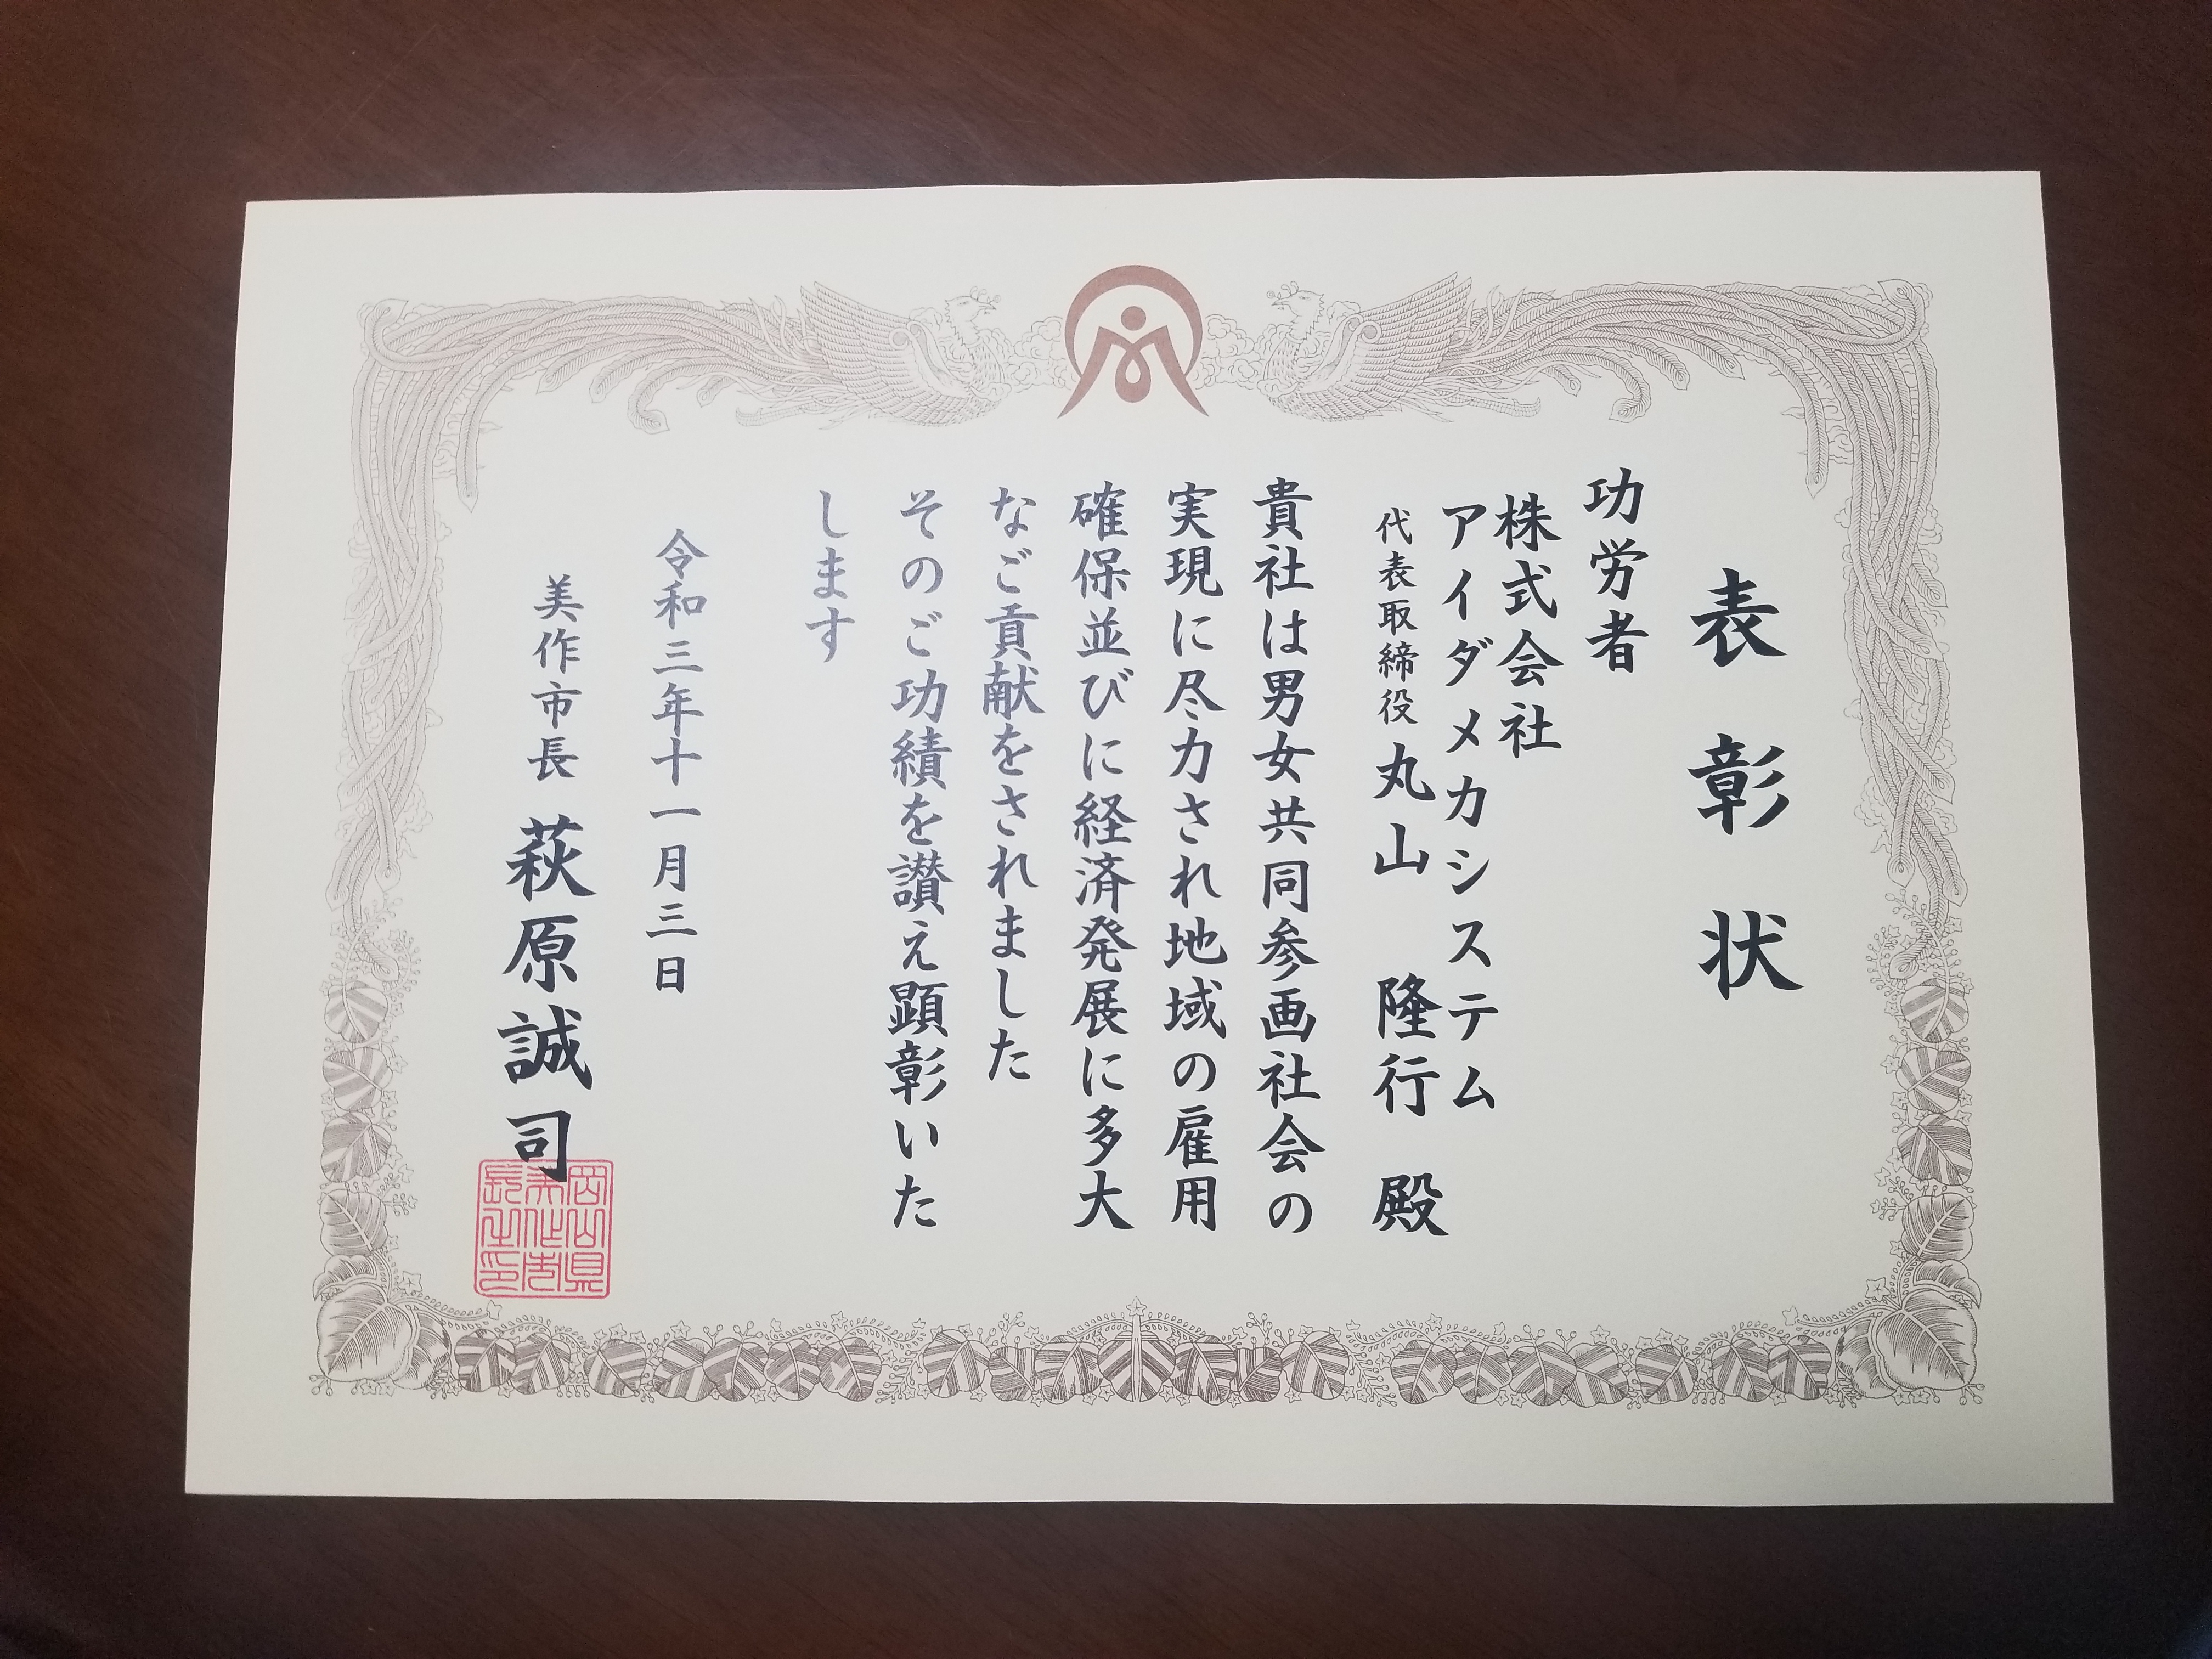 表彰状
功労者
株式会社
アイダメカシステム
代表取締役 丸山 隆行 殿
貴社は男女共同参画社会の
実現に尽力され地域の雇用
確保並びに経済発展に多大
なご貢献をされました
そのご功績を讃え顕彰いた
します
令和三年十一月三日
美作市長 萩原誠司
岡山県
美作市
長之印